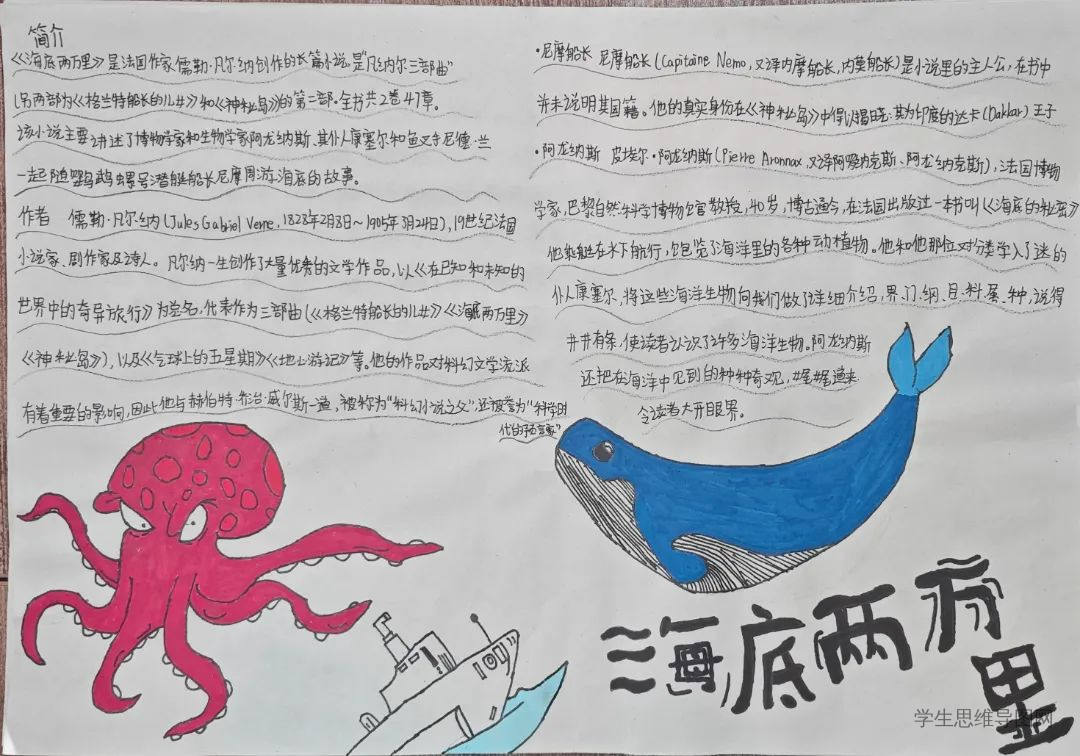 简介
《海底两万里》是法国作家儒勒·凡尔纳创作的长篇小说,是"凡纳尔三部曲"
(另两部为《格兰特船长的儿女》和《神秘岛》的第二部。全书共2卷47章。
该小说主要讲述了博物学家和生物学家阿龙纳斯、其仆人康塞尔和鱼叉手尼德·兰
一起随鹦鹉螺号潜艇船长尼摩周游海底的故事。
作者 儒勒·凡尔纳(Jules Gabriel Verne,1828年2月8日~1905年3月24日),19世纪法国
小说家、剧作家及诗人。凡尔纳一生创作了大量优秀的文学作品,以《在已知和未知的
世界中的奇异旅行》为总名,代表作为三部曲(《格兰特船长的儿女》《海底两万里》
《神秘岛》),以及《气球上的五星期》《地心游记》等。他的作品对科幻文学流派
有着重要的影响,因此他与赫伯特·乔治·威尔斯一道,被称为"科幻小说之父",还被誉为"科学时
代的预言家"
·尼摩船长 尼摩船长(Capitaine Nemo,又译内摩船长,内莫船长)是小说里的主人公,在书中
并未说明其国籍。他的真实身份在《神秘岛》中得以揭晓:其为印度的达卡(Dakkar)王子
·阿龙纳斯 皮埃尔·阿龙纳斯(Pierre Aronnax,又译阿龙纳克斯、阿龙纳克斯),法国博物
学家,巴黎自然科学博物馆教授,40岁,博古通今,在法国出版过一本书叫《海底的秘密》
他乘艇在水下航行,饱览了海洋里的各种动植物。他和他那位对分类学入了迷的
仆人康塞尔,将这些海洋生物向我们做了详细介绍,界、门、纲、目、科、属、种,说得
井井有条,使读者认识了许多海洋生物。阿龙纳斯
还把在海洋中见到的种种奇观,娓娓道来
令读者大开眼界。
海底两万里
学生思维导图网